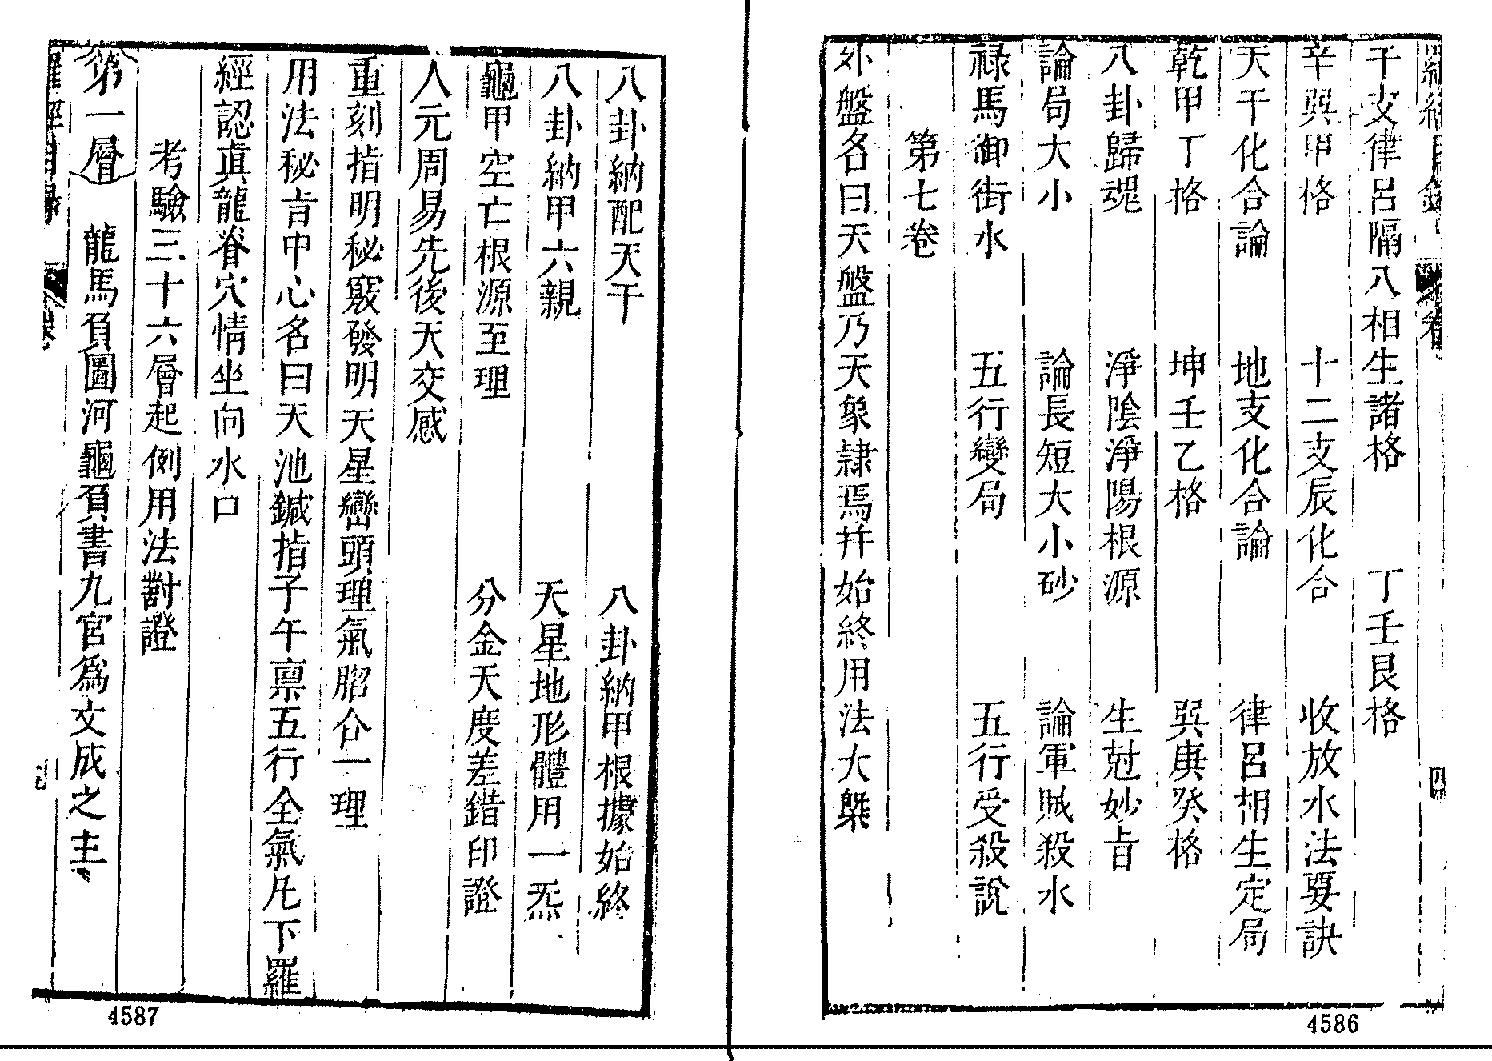 干支律呂隔八相生諸格　丁壬艮格
辛巽甲格　十二支辰化合　收放水法要訣
天干化合論　地支化合論　律呂相生定局
乾甲丁格　坤壬乙格　巽庚癸格
八卦歸魂　淨陰淨陽根源　生尅妙旨
論局大小　論長短大小砂　論軍賊殺水
祿馬御街水　五行變局　五行受殺說
第七卷
外盤名曰天盤乃天象隸焉幷始終用法大槩
4586
八卦納配天干　八卦納甲根據始終
八卦納甲六親　天星地形體用一炁
龜甲空亡根源至理　分金天度差錯印證
人元周易先後天交感
重刻指明秘竅發明天星巒頭理氣脗合一理
用法秘旨中心名曰天池鍼指子午禀五行全氣凡下羅
經認眞龍脊穴情坐向水口
考驗三十六層起例用法對證
第一層　龍馬負圖河龜負書九宮爲文成之主
4587